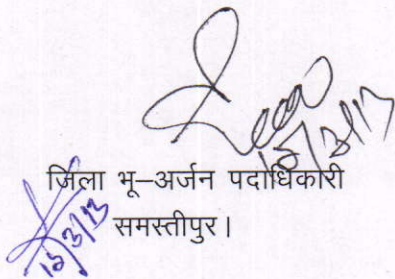 15/3/13
जिला भू–अर्जन पदाधिकारी
समस्तीपुर।
15/3/13